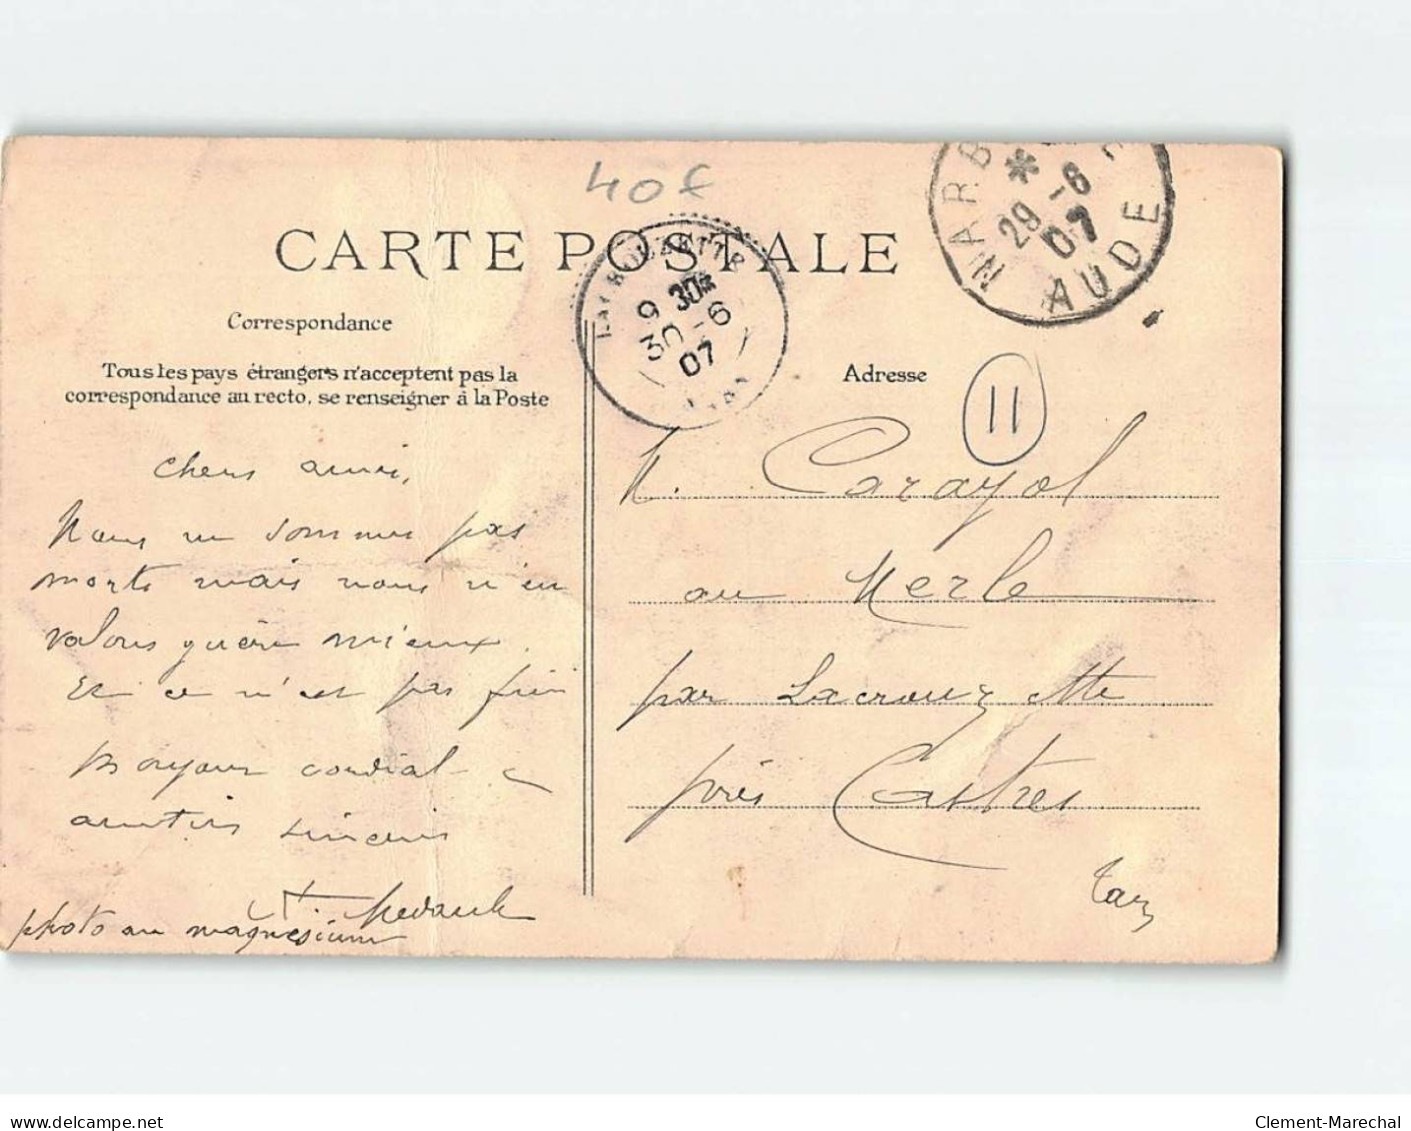 40 f
CARTE POSTALE
NARB
* 29 -6 07
AUDE
LACROUZETTE
9 30
30 -6
07
Correspondance
Tous les pays étrangers n'acceptent pas la
correspondance au recto, se renseigner à la Poste
Chers amis,
Nous ne sommes pas
morts mais nous n'en
valons guère mieux.
Et ce n'est pas fini
Bonjour cordial &
amitiés sincères
photo au magnesium
Adresse
11
M. Carayol
au Merle
par Lacrouzette
près Castres
Tarn
www.delcampe.net
Clement-Marechal